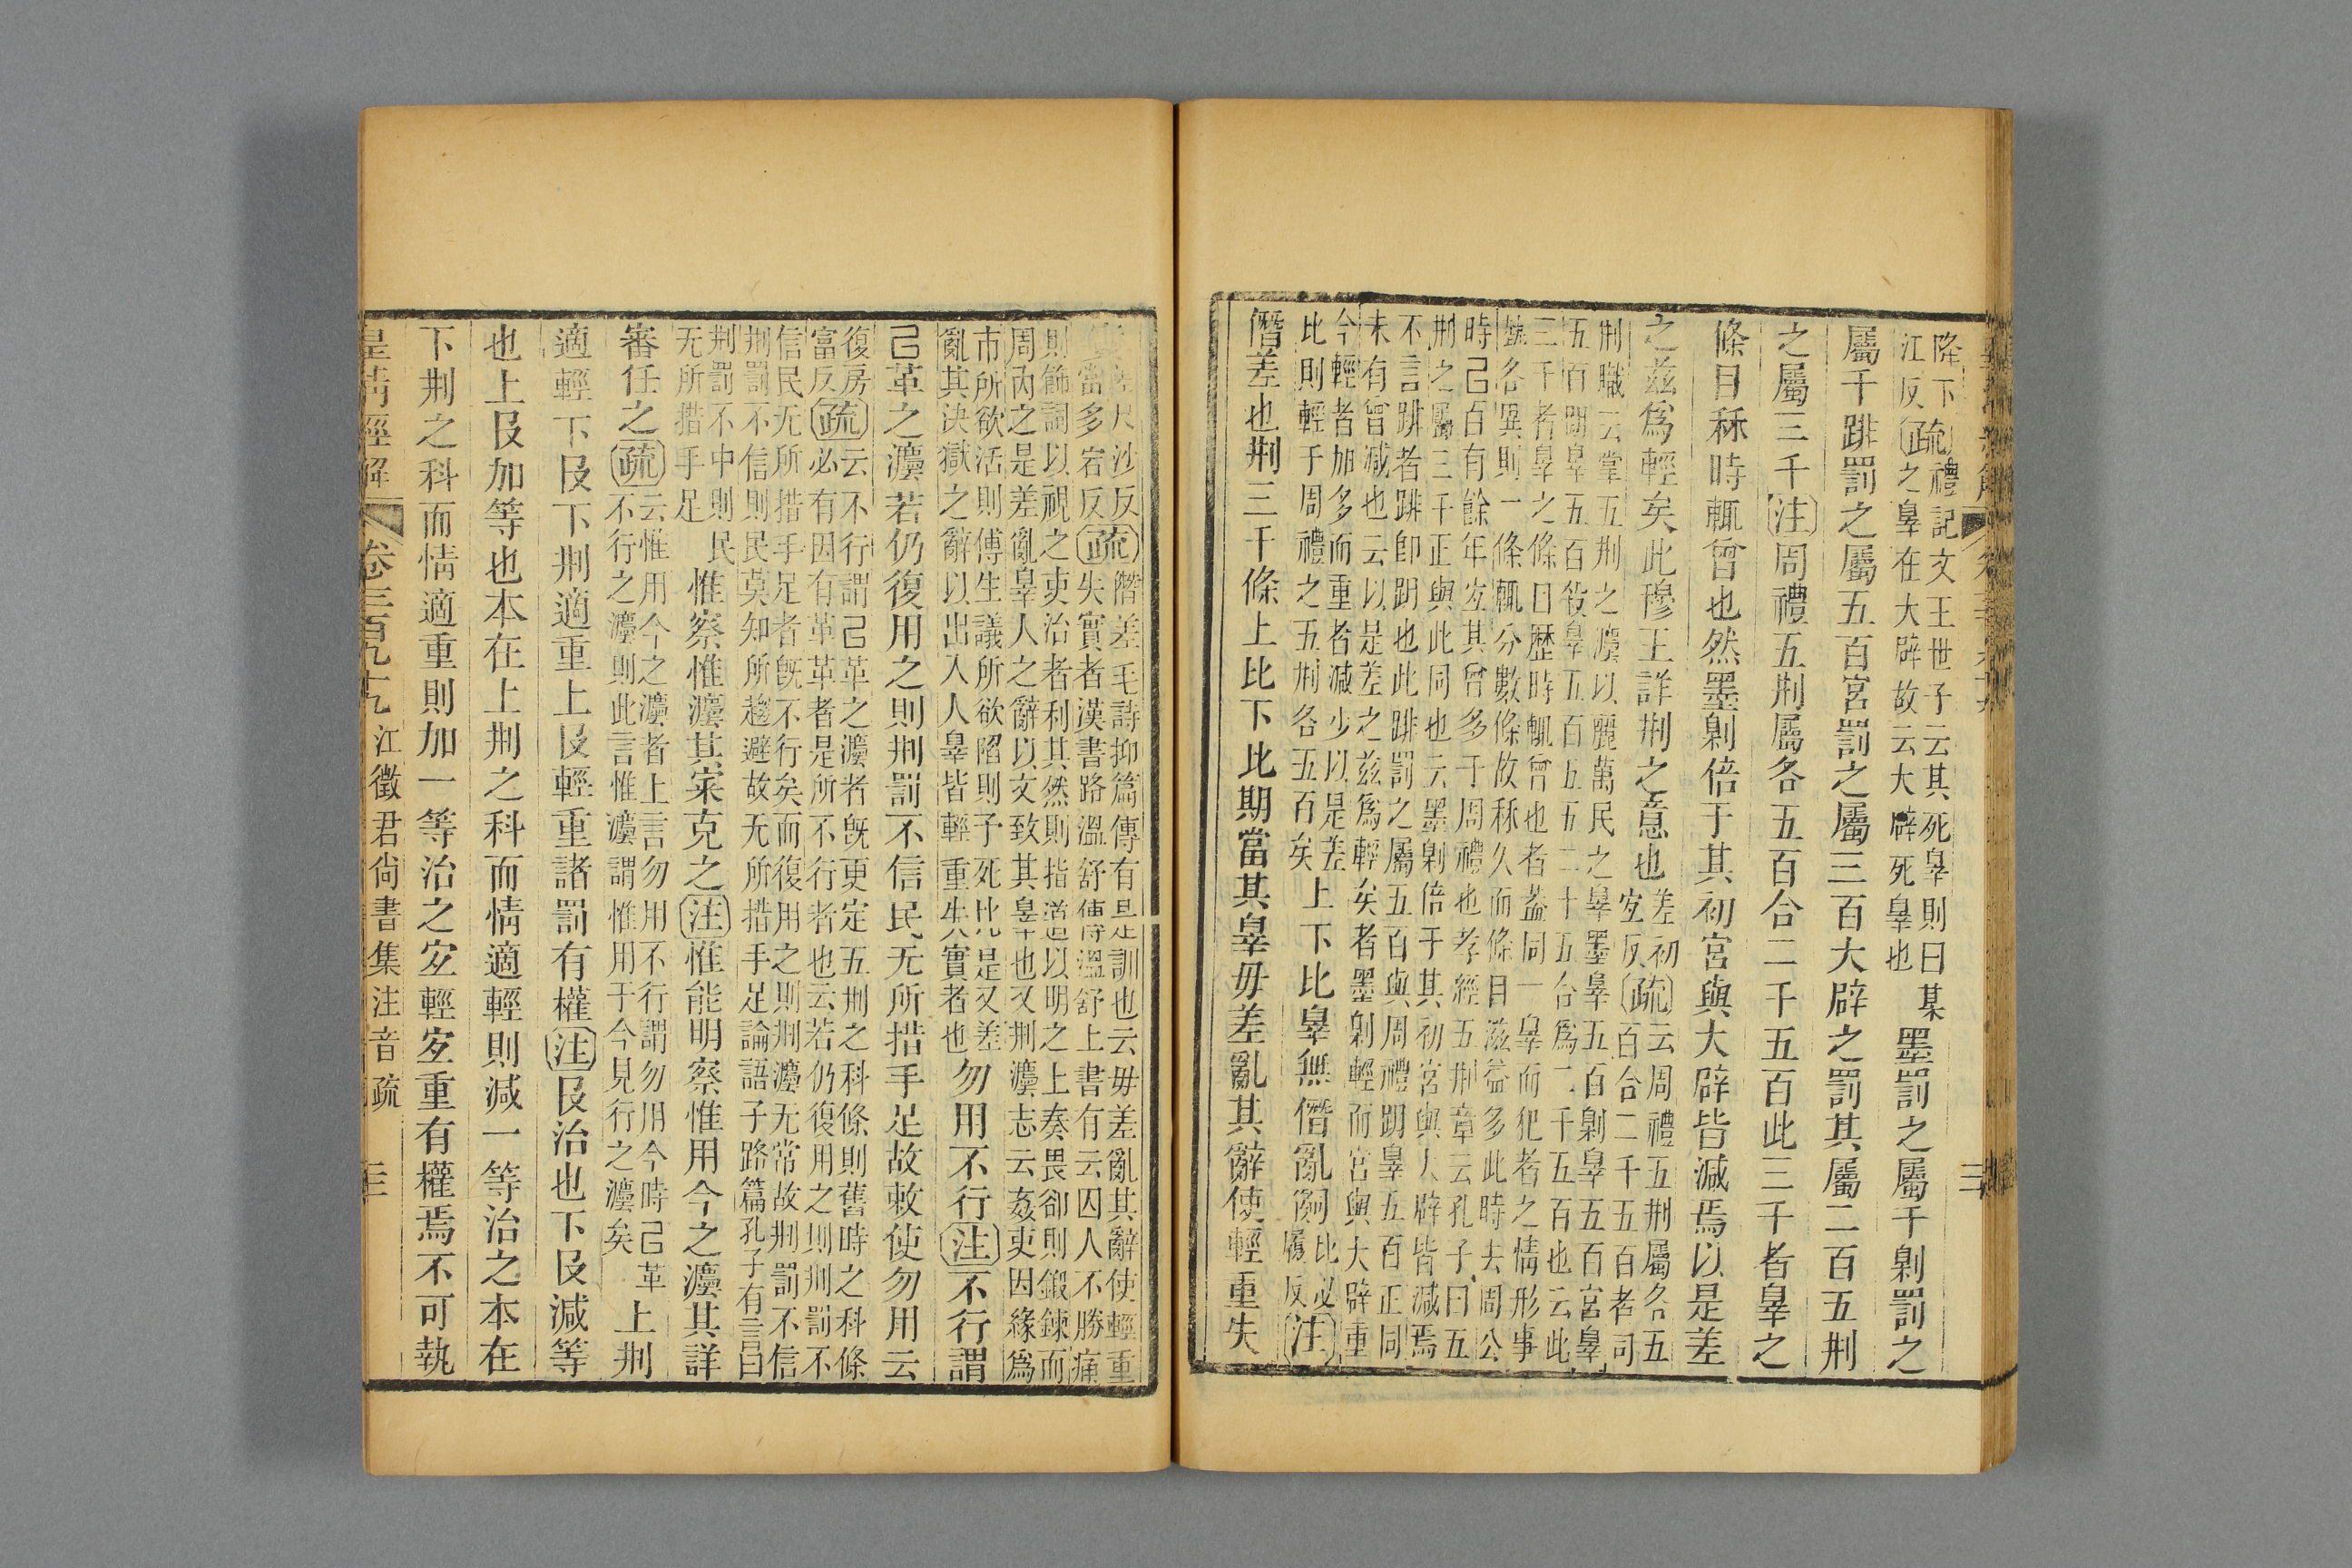 降下
江反疏禮記文王世子云其死辠則曰某
之辠在大辟故云大辟死辠也
墨罰之屬千剝罰之
屬千跳罰之屬五百宮罰之屬三百大辟之罰其屬二百五㓝
之屬三千注周禮五㓝屬各五百合二千五百此三千者辠之
條目稀時輒曾也然墨剝倍于其初宮與大辟皆減焉以是差
之兹爲輕矣此穆王詳㓝之意也
差初
宐反疏云周禮五㓝屬各五
百合二千五百者司
㓝職云掌五㓝之灋以麗萬民之辠墨辠五百剝辠五百宮辠
五百刖辠五百殺辠五百五五二十五合爲二千五百也云此
三千者辠之條目歷時輒曾也者葢同一辠而犯者之情形事
各異則一條輒分數條故稀久而條目滋益多此時去周公
時已百有餘年宐其曾多于周禮也孝經五㓝章云孔子曰五
㓝之屬三千正與此同也云墨剝倍于其初宮與大辟皆減焉
不言跳者跳卽刖也此跳罰之屬五百與周禮刖辠五百正同
未有曾減也云以是差之兹爲輕矣者墨剝輕而宮與大辟重
今輕者加多而重者減少以是差
比則輕于周禮之五㓝各五百矣
上下比辠無僭亂䛐
比必
履反注
僭差也㓝三千條上比下比期當其辠毋差亂其辭使輕重失
多宕反疏僭差毛詩抑篇傳有是訓也云毋差亂其辭使輕重
失實者漢書路溫舒傳溫舒上書有云囚人不勝痛
則飾詞以視之吏治者利其然則指道以明之上奏畏卻則鍛鍊而
周內之是差亂辠人之辭以文致其辠也又㓝灋志云姦吏因緣爲
市所欲活則傅生議所欲陷則予死比是又差
亂其決獄之辭以出入人辠皆輕重失實者也
勿用不行注不行謂
已革之灋若仍復用之則㓝罰不信民无所措手足故敕使勿用云
復房
富反疏云不行謂已革之灋者旣更定五㓝之科條則舊時之科條
必有因有革革者是所不行者也云若仍復用之則㓝罰不
信民无所措手足者旣不行矣而復用之則㓝灋无常故㓝罰不信
㓝罰不信則民莫知所趨避故无所措手足論語子路篇孔子有言曰
㓝罰不中則民
无所措手足
惟察惟灋其宷克之注惟能明察惟用今之灋其詳
審任之疏云惟用今之灋者上言勿用不行謂勿用今時已革
不行之灋則此言惟灋謂惟用于今見行之灋矣
上㓝
適輕下𠬝下㓝適重上𠬝輕重諸罰有權注𠬝治也下𠬝減等
也上𠬝加等也本在上㓝之科而情適輕則減一等治之本在
下㓝之科而情適重則加一等治之宐輕宐重有權焉不可執
皇淸經解 卷三百九十九 江徵君尙書集注音疏 三